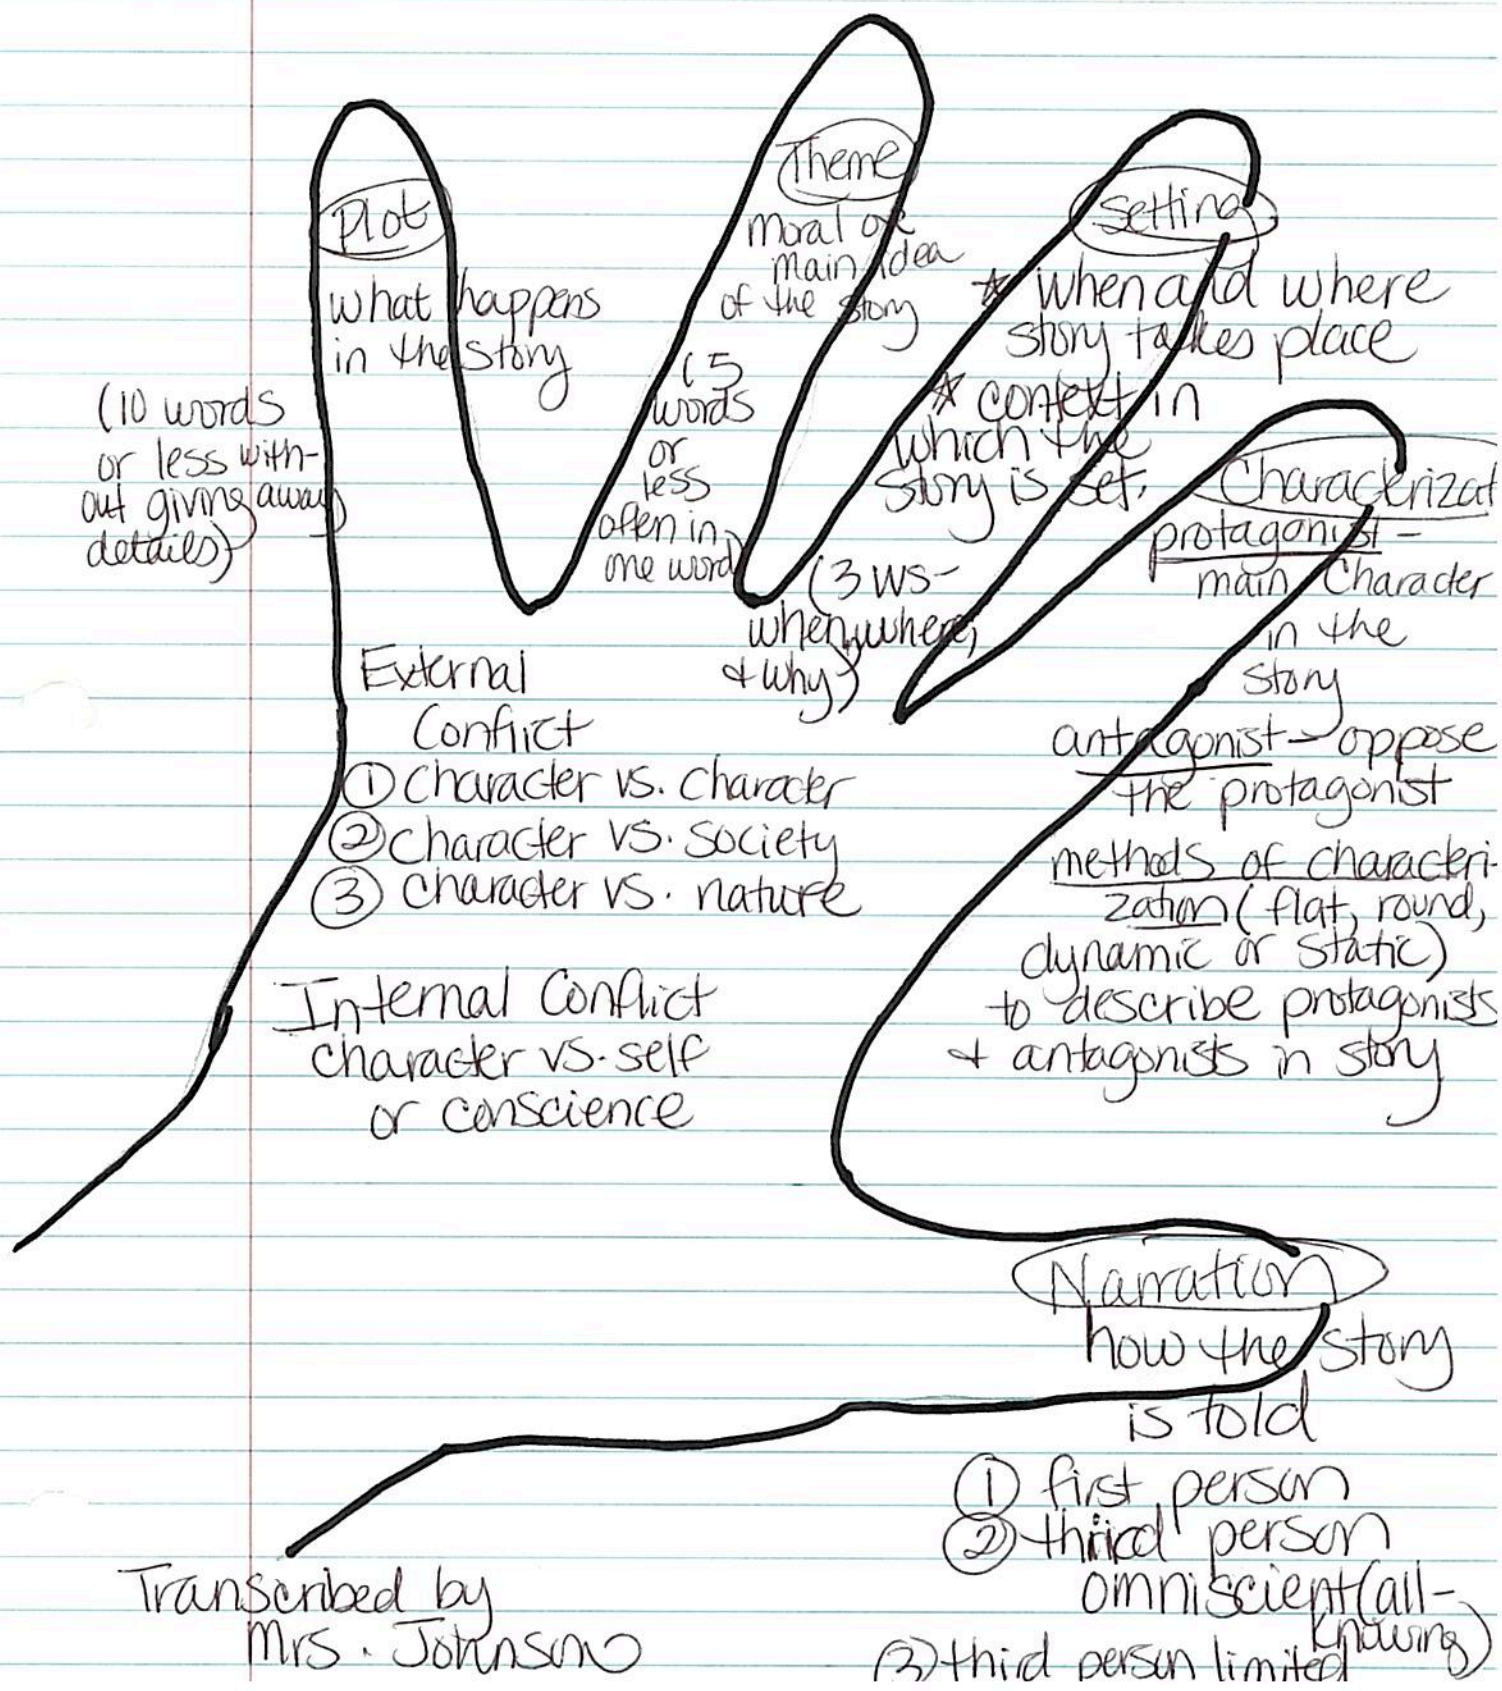 Plot
what happens
in the story
(10 words
or less with-
out giving away
details)
Theme
moral or
main idea
of the story
(5
words
or
less
often in
one word)
Setting
* when and where
story takes place
* context in
which the
story is set.
(3 Ws-
when, where,
& why)
Characterizat
protagonist -
main character
in the
story
antagonist - oppose
the protagonist
methods of characteri-
zation (flat, round,
dynamic or static)
to describe protagonists
& antagonists in story
External
Conflict
① Character vs. Character
② Character vs. Society
③ Character vs. nature
Internal Conflict
character vs. self
or conscience
Narration
how the story
is told
① first person
② third person
omniscient (all-
knowing)
③ third person limited
Transcribed by
Mrs. Johnson